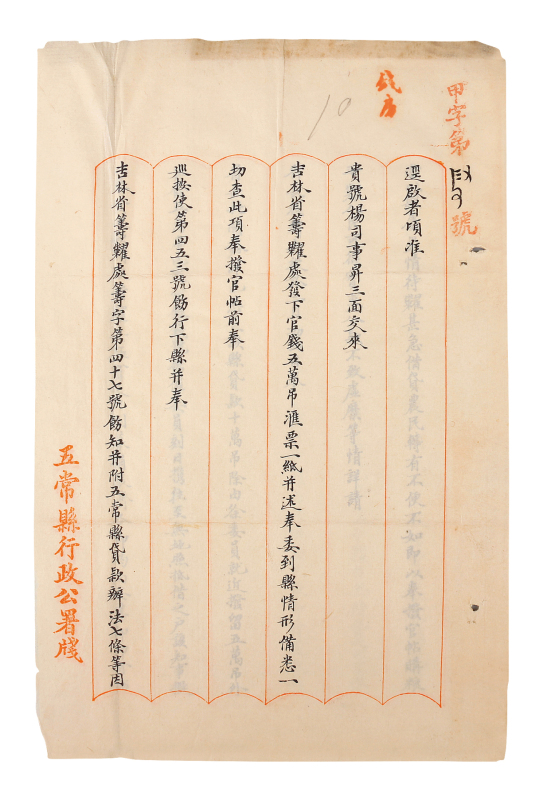 甲字第號
逕啟者頃准
貴號楊司事昇三面交來
吉林省籌糶處發下官錢五萬吊滙票一紙并述奉委到縣情形備悉一
切查此項奉撥官帖前奉
巡按使第四五三號飭行下縣并奉
吉林省籌糶處籌字第四十七號飭知并附五常縣貸款辦法七條等因
五常縣行政公署牋
10